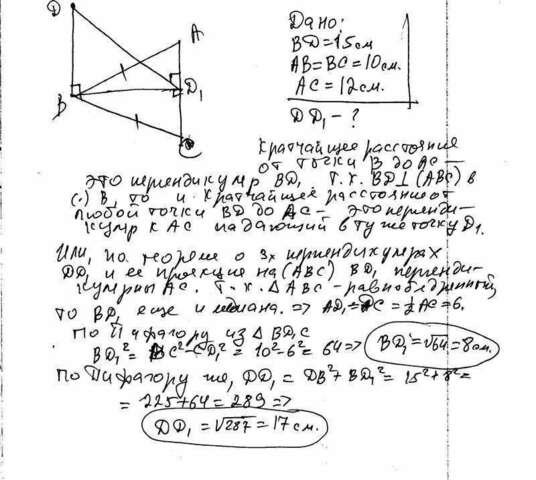 D
A
B
D₁
C
Дано:
BD=15см
AB=BC=10см.
AC=12см.
DD₁-?
Кратчайшее расстояние
от точки B до AC —
это перпендикуляр BD₁ т.к. BD⊥(ABC) в
(·) B, то и кратчайшее расстояние от
любой точки BD до AC - это перпенди-
куляр к AC падающий в ту же точку D₁.
Или, по теореме о 3х перпендикулярах
DD₁ и ее проекция на (ABC) BD₁ перпенди-
кулярны AC. Т.к. △ABC - равнобедренный,
то BD₁ еще и медиана. => AD₁=DC=½AC=6.
По Пифагору из △BD₁C
BD₁²=BC²-CD₁²=10²-6²=64=> BD₁=√64=8см.
По Пифагору же, DD₁=DB²+BD₁²=15²+8²=
=225+64=289=>
DD₁=√287=17см.